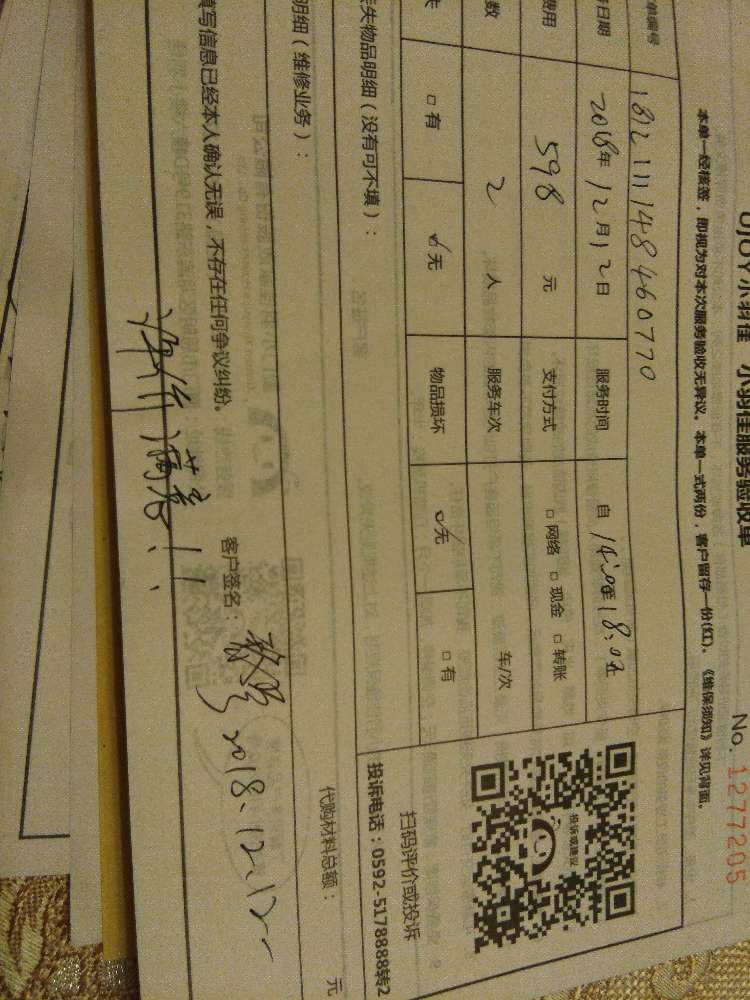 UJOY小羽佳 小羽佳服务验收单
No. 1277205
本单一经核签，即视为对本次服务验收无异议。本单一式两份，客户留存一份(红)。《维保须知》详见背面。
单编号 181211148460770
日期 2018年12月12日 服务时间 自14:00至18:00止
费用 598 元 支付方式 □网络 □现金 □转账
数 2 人 服务车次 车/次
失 □有 ☑无 物品损坏 ☑无 □有
丢失物品明细（没有可不填）：
扫码评价或投诉
投诉电话：0592-5178888转2
投诉或建议
明细（维修业务）：
代购材料总额： 元
填写信息已经本人确认无误，不存在任何争议纠纷。 客户签名：
2018.12.12
满意！！